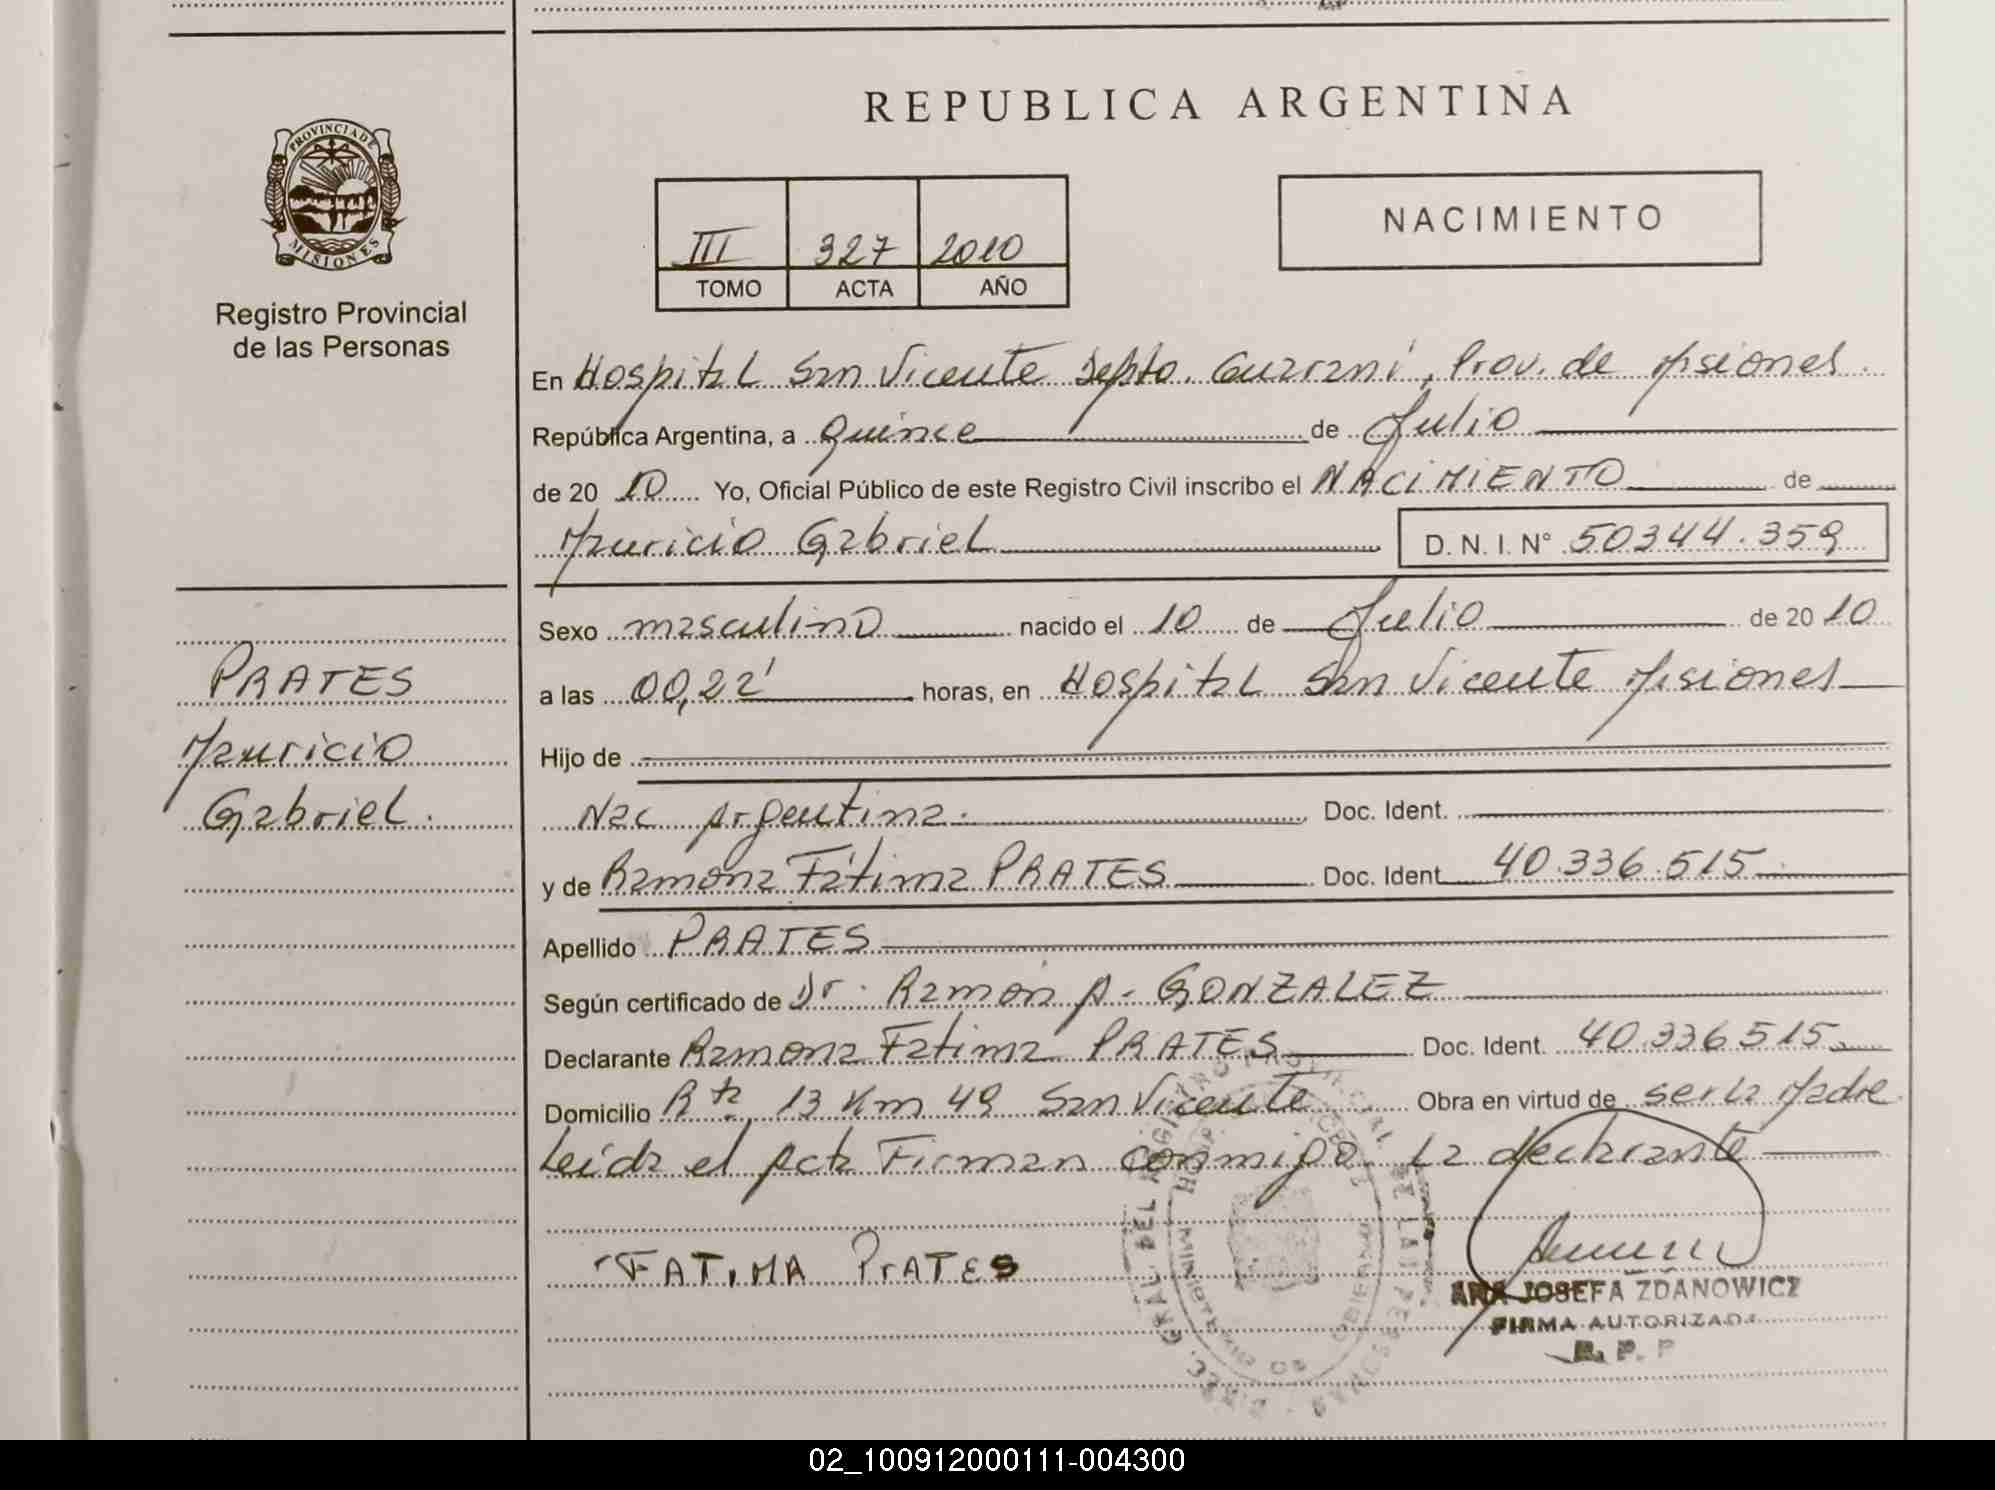 REPUBLICA ARGENTINA
PROVINCIA DE
MISIONES
Registro Provincial
de las Personas
III 327 2010
TOMO ACTA AÑO
NACIMIENTO
En Hospital San Vicente Depto. Guarani, Prov. de Misiones.
República Argentina, a quince de Julio
de 20 10 Yo, Oficial Público de este Registro Civil inscribo el NACIMIENTO de
Mauricio Gabriel D. N. I. N° 50344.359
Sexo masculino nacido el 10 de Julio de 20 10
a las 00,22' horas, en Hospital San Vicente Misiones
Hijo de
Nac Argentina. Doc. Ident.
y de Ramona Fátima PRATES Doc. Ident 40.336.515
Apellido PRATES
Según certificado de Dr. Ramón A. GONZALEZ
Declarante Ramona Fatima PRATES Doc. Ident. 40.336515
Domicilio Rta 13 Km 49 San Vicente Obra en virtud de ser la Madre
Leída el Acta Firman conmigo. La declarante
FATIMA PrATES
ANA JOSEFA ZDANOWICZ
FIRMA AUTORIZADA
R. P. P
PRATES
Mauricio
Gabriel.
02_100912000111-004300